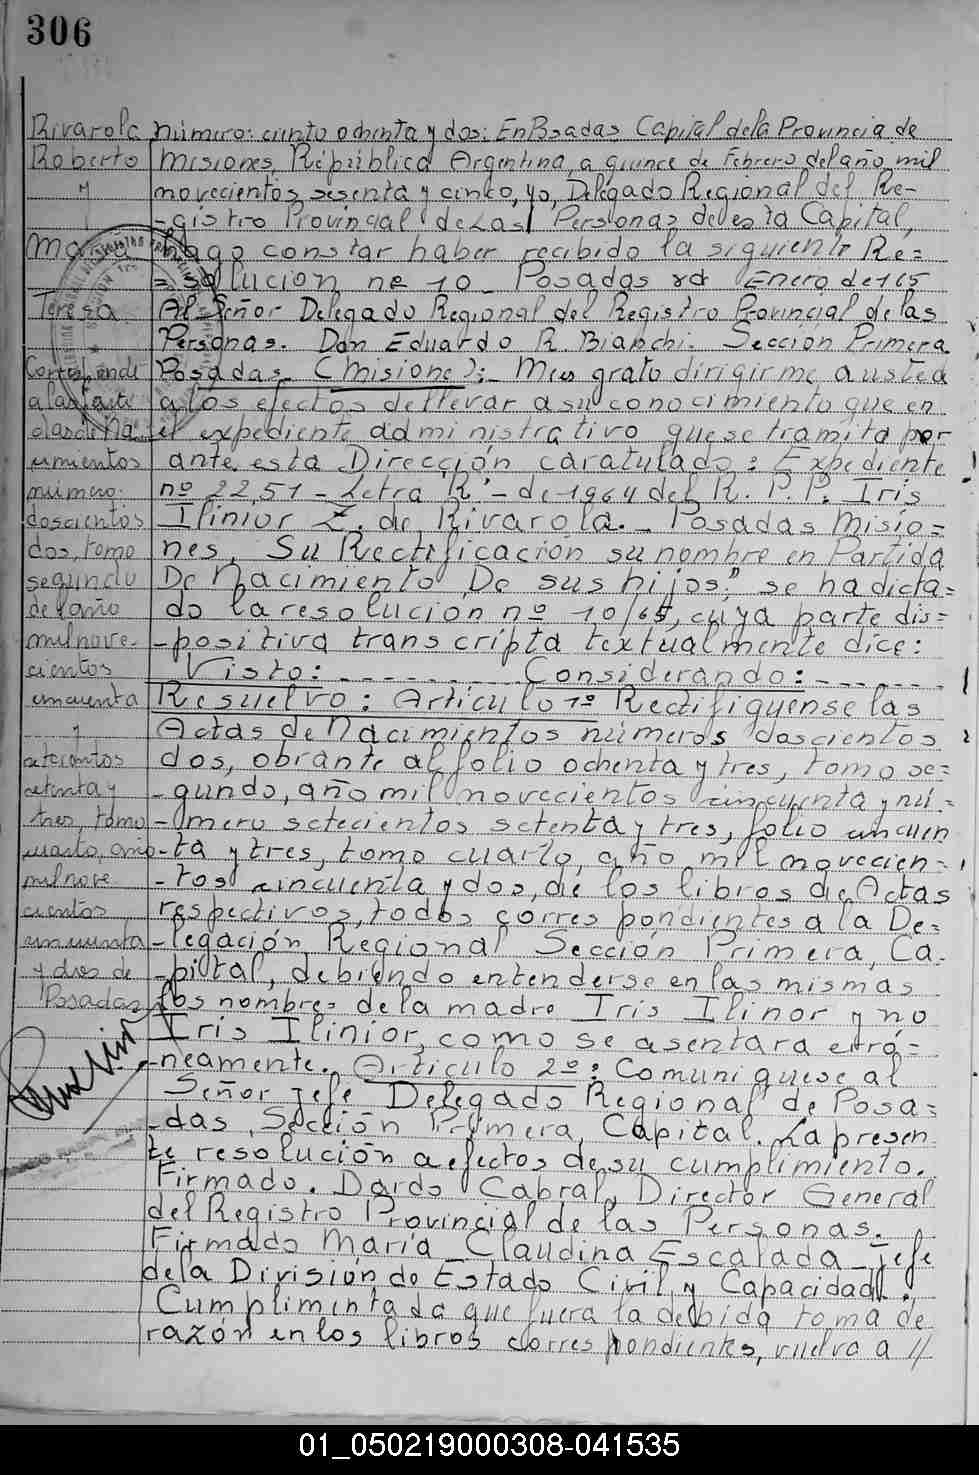 306
Rivarola
Roberto
y
María
Teresa
Corresponde
a las actas
de nacimientos
número
doscientos
dos, tomo
segundo
del año
mil nove-
cientos
cincuenta
y
setecientos
setenta y
tres, tomo
cuarto, año
mil nove
cientos
cincuenta
y dos de
Posadas
número: ciento ochenta y dos: En Posadas Capital de la Provincia de
Misiones, República Argentina, a quince de Febrero del año mil
novecientos sesenta y cinco, yo, Delegado Regional del Re-
-gistro Provincial de Las Personas de esta Capital,
hago constar haber recibido la siguiente Re=
=solucion nº 10_ Posadas Enero de 165
Al Señor Delegado Regional del Registro Provincial de las
Personas. Don Eduardo R. Bianchi. Sección Primera
Posadas_ (Misiones):_ Mees grato dirigirme a usted
a los efectos de llevar a su conocimiento que en
el expediente administrativo que se tramita por
ante esta Dirección caratulado: Expediente
nº 2251_ Letra "R"_ de 1964 del R. P. P. Iris
Ilinior Z. de Rivarola._ Posadas Misio=
nes, Su Rectificación su nombre en Partida
De Nacimiento De sus hijos," se ha dicta=
do la resolucion nº 10/65, cuya parte dis=
-positiva transcripta textualmente dice:
Visto:_ _ _ _ _ _ Considerando:_ _ _ _
Resuelvo: Articulo 1º Rectifiquense las
Actas de Nacimientos números doscientos
dos, obrante al folio ochenta y tres, tomo se=
-gundo, año mil novecientos cincuenta y nú=
-mero setecientos setenta y tres, folio cincuen
-ta y tres, tomo cuarto, año mil novecien=
-tos cincuenta y dos, de los libros de Actas
respectivos, todos correspondientes a la De=
-legación Regional Sección Primera, Ca-
-pital, debiendo entenderse en las mismas
los nombres de la madre Iris Ilinor y no
Iris Ilinior, como se asentara erró=
-neamente. Articulo 2º: Comuniquese al
Señor Jefe Delegado Regional de Posa=
-das, Sección Primera, Capital. La presen
te resolución a efectos de su cumplimiento.
Firmado. Dardo Cabral, Director General
del Registro Provincial de las Personas.
Firmado María Claudina Escalada_ Jefe
de la División de Estado Civil y Capacidad.
Cumplimentada que fuera la debida toma de
razón en los libros correspondientes, vuelva a //
01_050219000308-041535